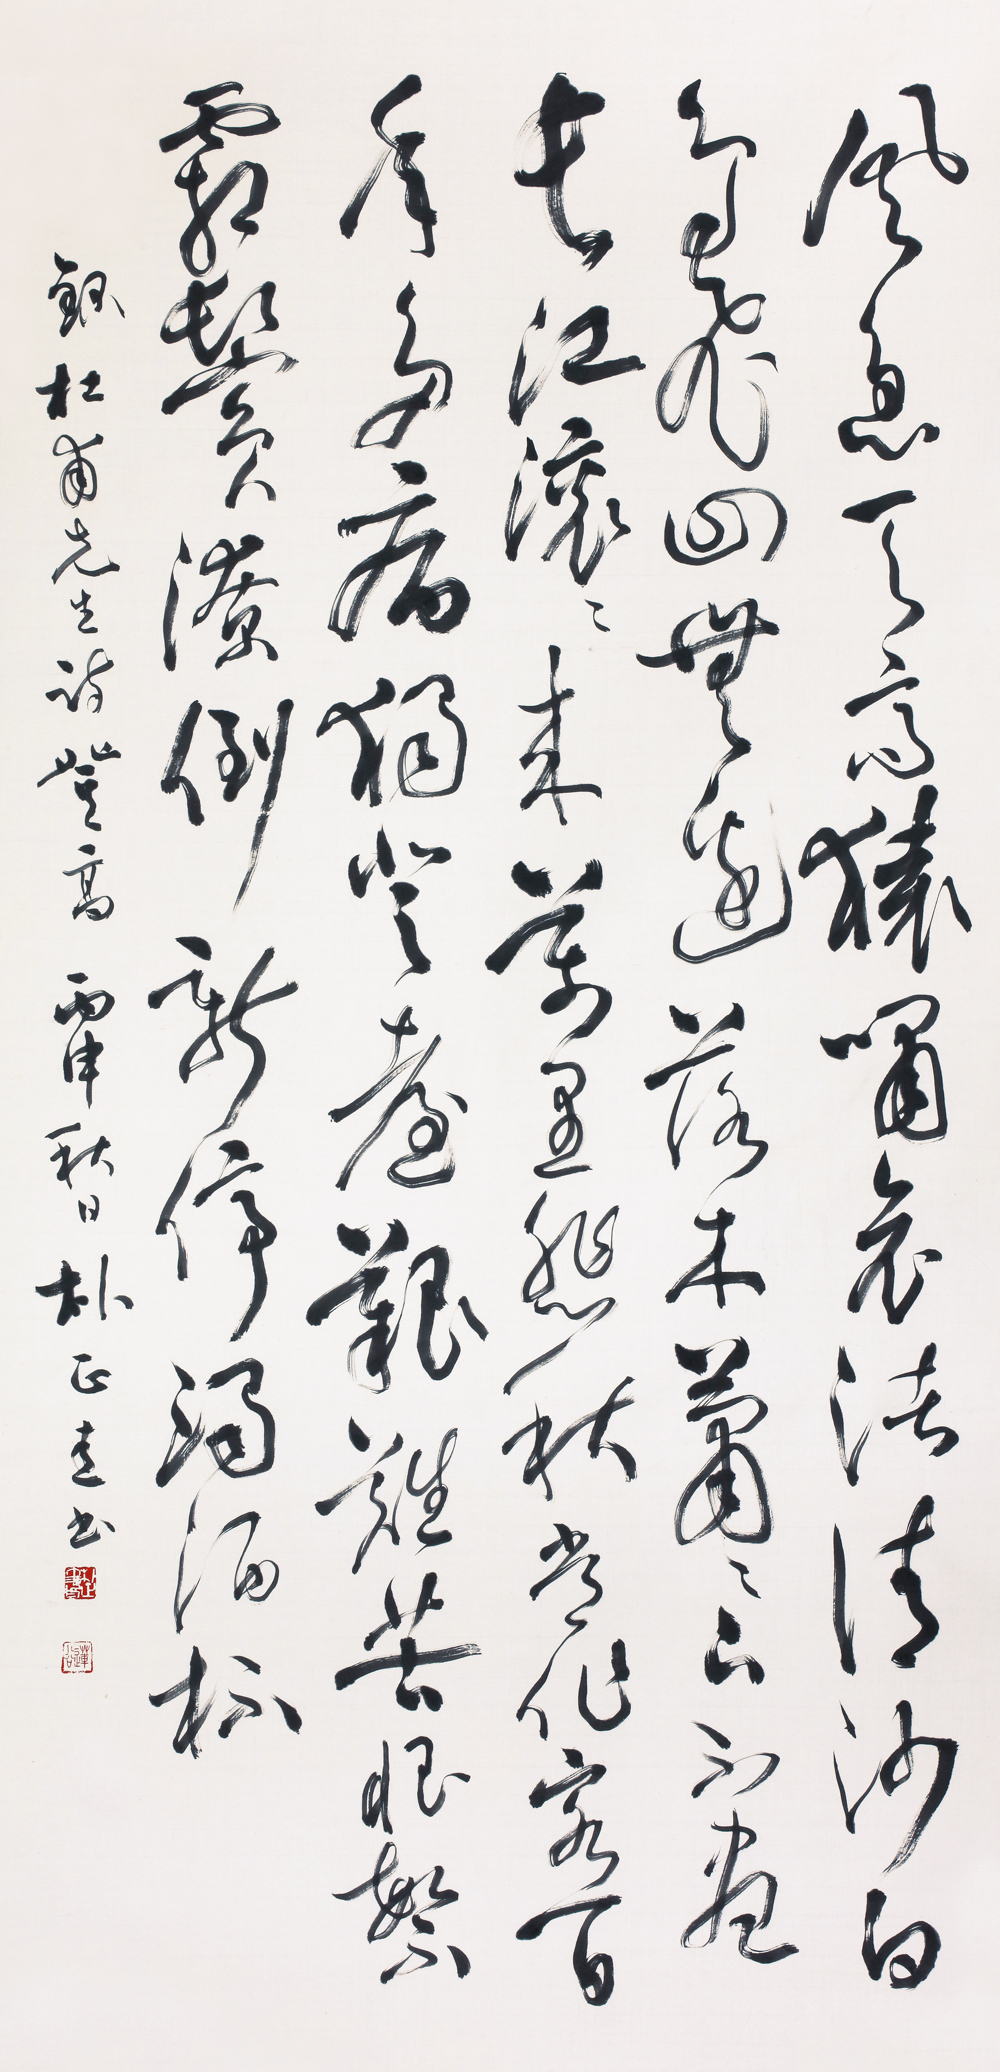 風急天高猿嘯哀渚清沙白
鳥飛回無邊落木蕭〻下不盡
長江滾〻來萬里悲秋常作客百
年多病獨登臺艱難苦恨繁
霜鬢潦倒新停濁酒杯
錄杜甫先生詩登高 丙申秋日 朴正書